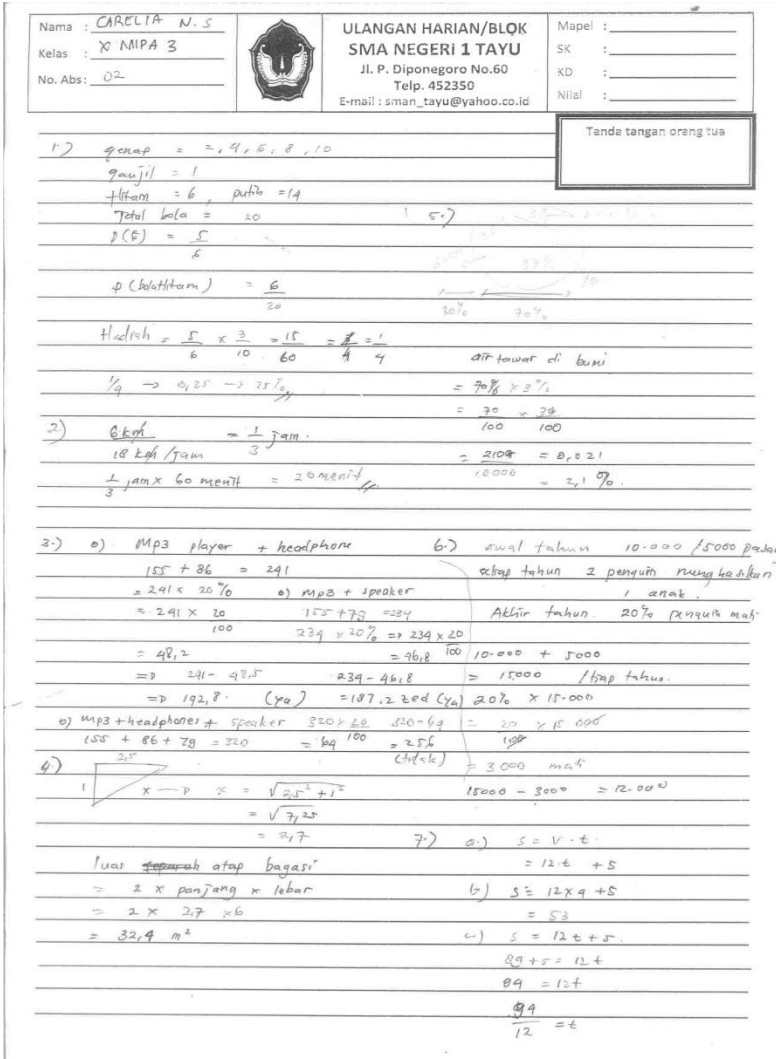 Nama : CARELIA N. S
Kelas : XI MIPA 3
No. Abs: 02
ULANGAN HARIAN/BLOK
SMA NEGERI 1 TAYU
Jl. P. Diponegoro No.60
Telp. 452350
E-mail : sman_tayu@yahoo.co.id
Mapel :
SK :
KD :
Nilai :
Tanda tangan orang tua
1.) genap = 2, 4, 6, 8, 10
ganjil = 1
Hitam = 6, putih = 14
Total bola = 20
P(E) = 5/6
P (bola hitam) = 6/20
Hadiah = 5/6 x 3/10 = 15/60 = 1/4
1/4 -> 0,25 -> 25%
2) 6 km / 18 km/jam = 1/3 jam.
1/3 jam x 60 menit = 20 menit
3.) o) MP3 player + headphone
155 + 86 = 241
= 241 x 20%
= 241 x 20/100
= 48,2
=> 241 - 48,5
=> 192,8. (ya)
o) mp3 + speaker
155 + 79 = 234
234 x 20% => 234 x 20/100
= 46,8
234 - 46,8
= 187.2 zed (ya)
o) mp3 + headphones + speaker
155 + 86 + 79 = 320
320 x 20/100
= 64
320 - 64
= 256
(tidak)
4.) 2,5
1
x -> x = √2,5² + 1²
= √7,25
= 2,7
luas atap bagasi
= 2 x panjang x lebar
= 2 x 2,7 x 6
= 32,4 m²
5.)
97%
30% 70%
air tawar di bumi
= 70% x 3%
= 70/100 x 3/100
= 210/10000 = 0,021
= 2,1 %.
6.) awal tahun 10.000 / 5000 pasang
setiap tahun 2 penguin menghasilkan
1 anak.
Akhir tahun. 20% penguin mati
10.000 + 5000
= 15000 / tiap tahun.
20% x 15.000
= 20/100 x 15.000
= 3000 mati
15000 - 3000 = 12.000
7.) a.) s = v . t.
= 12.t + 5
b.) s = 12 x 4 + 5
= 53
c.) s = 12 t + 5.
89 + 5 = 12 t
84 = 12t
94/12 = t